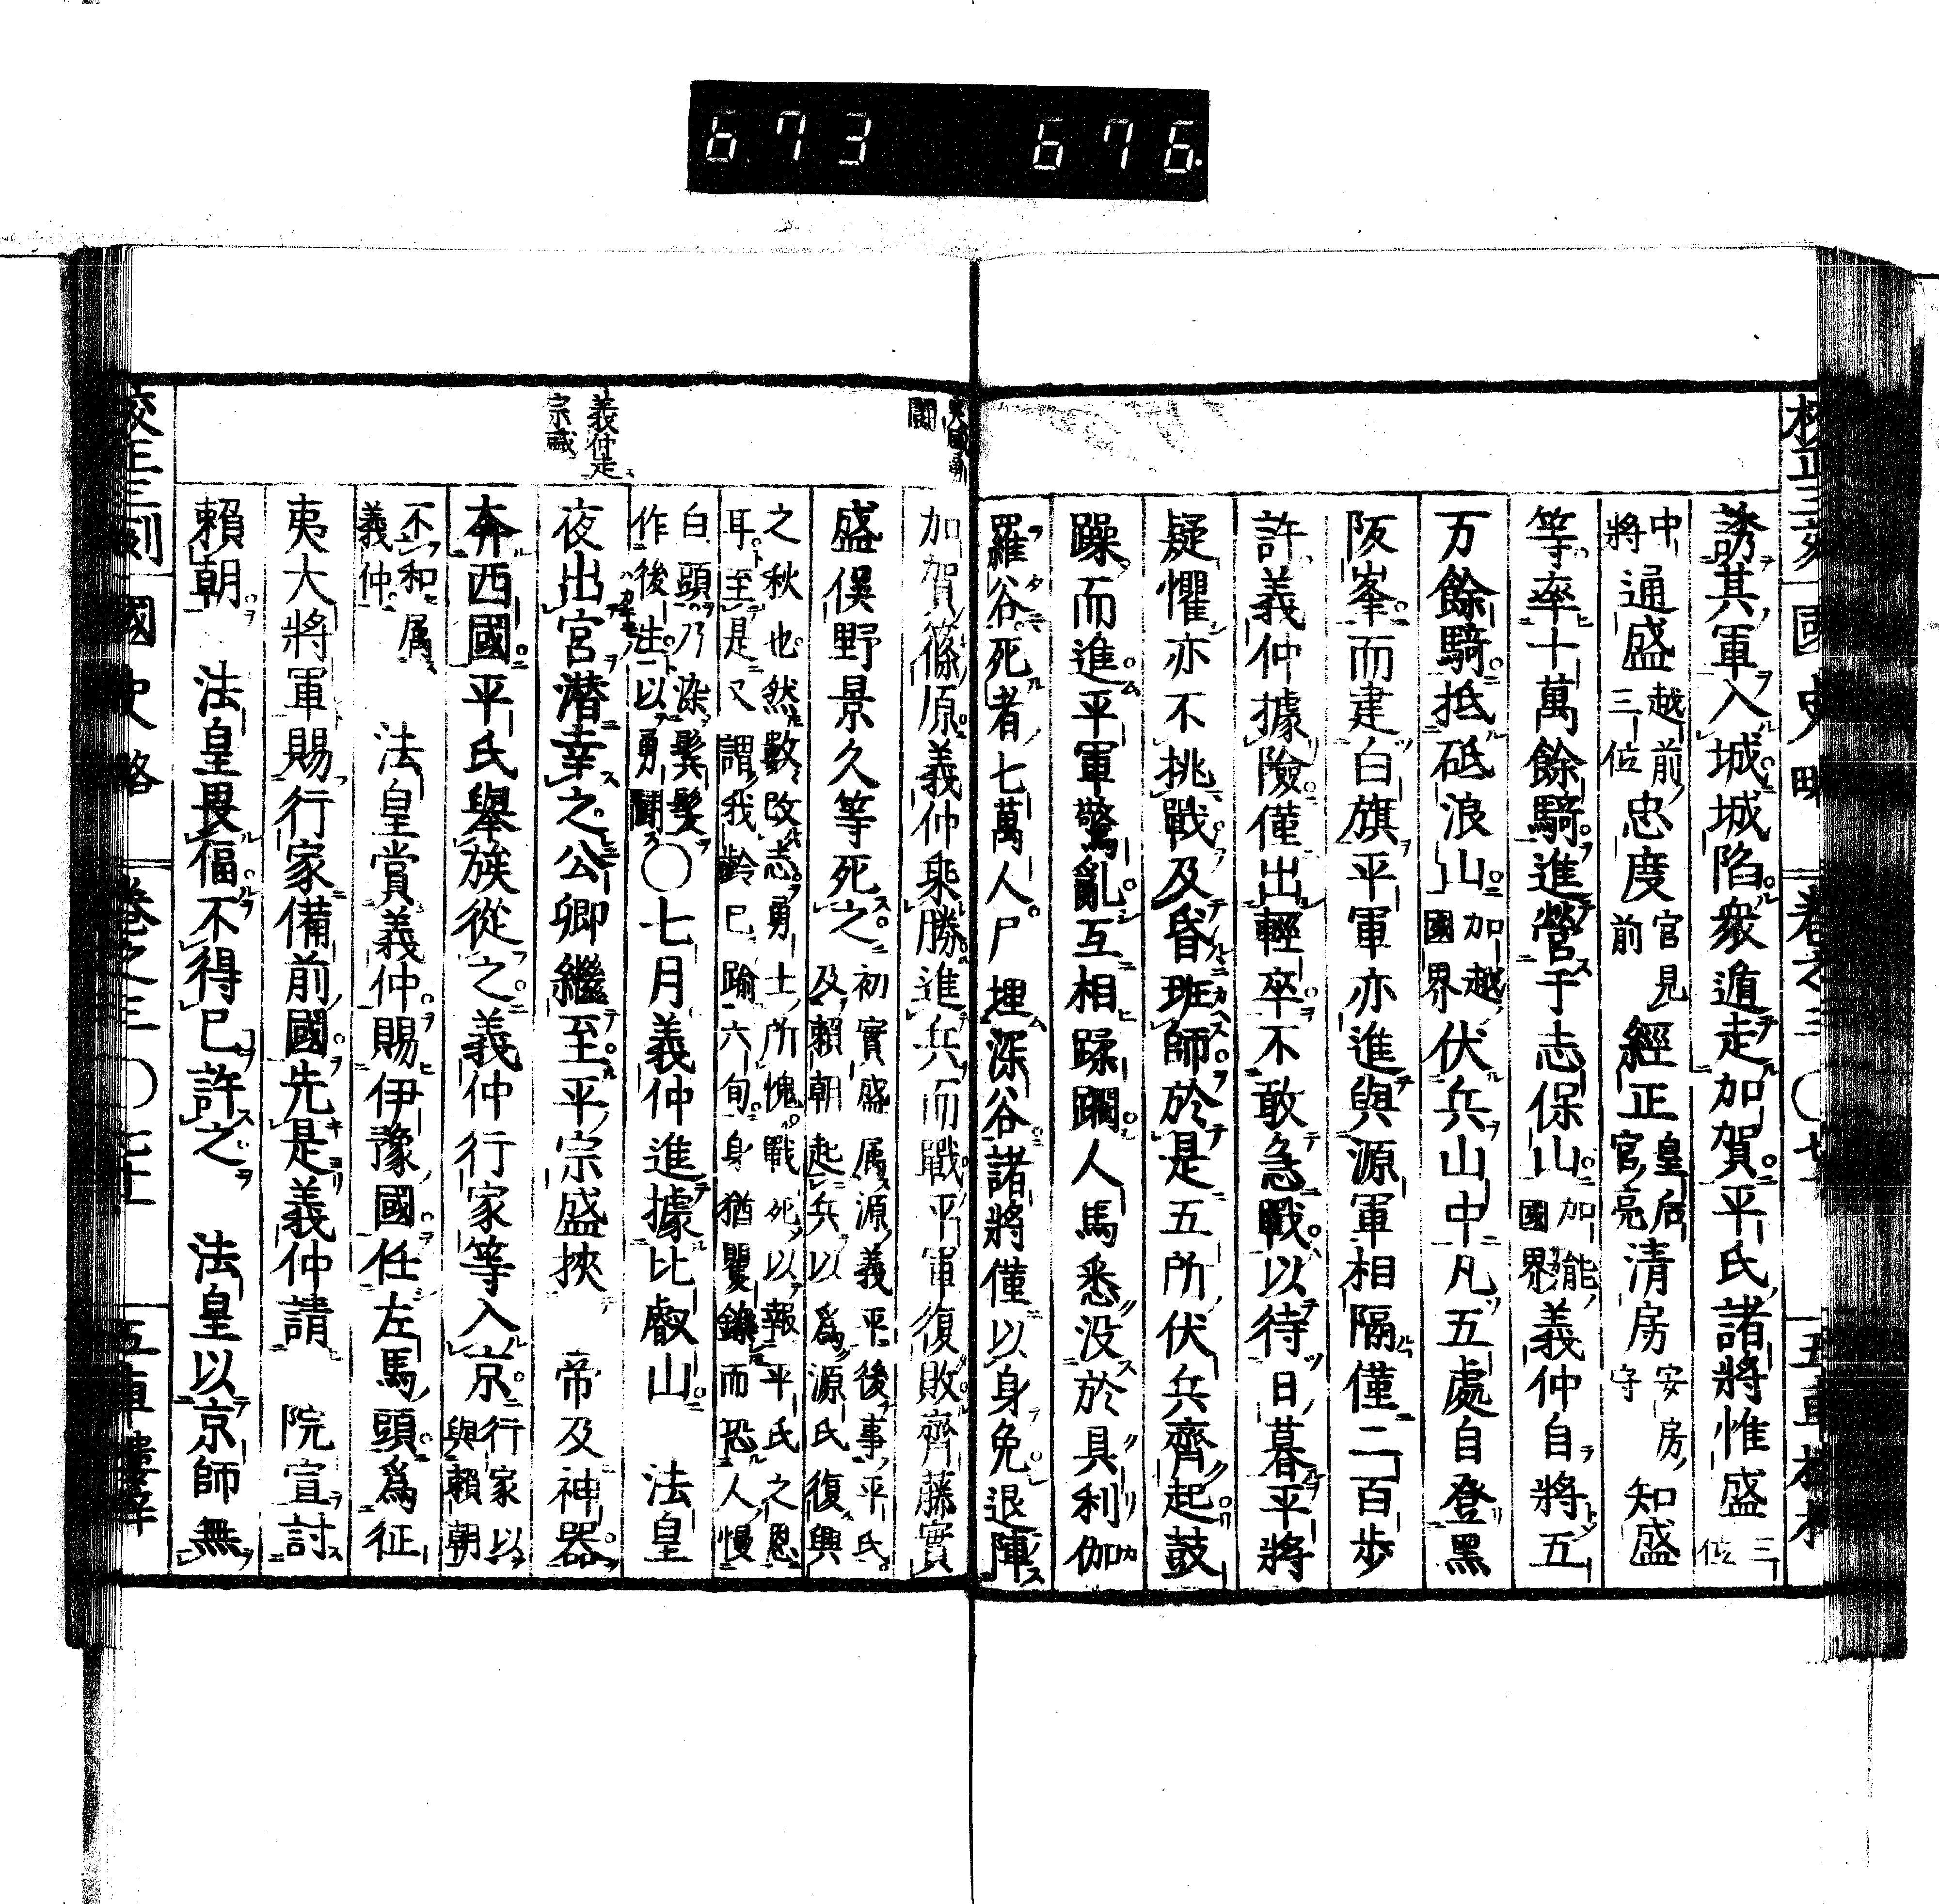 673 676.
國史略
誘其軍入城城陷衆遁走加賀平氏諸將惟盛三位
中將通盛越前三位忠度官見前經正皇后宮亮清房安房守知盛
等率十萬餘騎進營于志保山加能國界義仲自將五
万餘騎抵砥浪山加越國界伏兵山中凡五處自登黑
阪峯而建白旗平軍亦進與源軍相隔僅二百步
許義仲據險僅出輕卒不敢急戰以待日暮平將
疑懼亦不挑戰及昏班師於是五所伏兵齊起鼓
躁而進平軍驚亂互相蹂躙人馬悉没於具利伽
羅谷死者七萬人尸埋深谷諸將僅以身免退陣
加賀篠原義仲乘勝進兵而戰平軍復敗齊藤實
盛俣野景久等死之初實盛属源義平後事平氏及賴朝起兵以爲源氏復興
之秋也然數改志勇士所愧戰死以報平氏之恩耳至是又謂我齡已踰六旬身猶矍鑠而恐人慢
白頭乃染鬂髮作後生以勇鬪○七月義仲進據比叡山　法皇
夜出宮潜幸之公卿繼至平宗盛挾　帝及神器
奔西國平氏舉族從之義仲行家等入京行家以與賴朝
不和属義仲　法皇賞義仲賜伊豫國任左馬頭爲征
夷大將軍賜行家備前國先是義仲請　院宣討
賴朝　法皇畏偪不得已許之　法皇以京師無
義仲走
宗盛
國史略